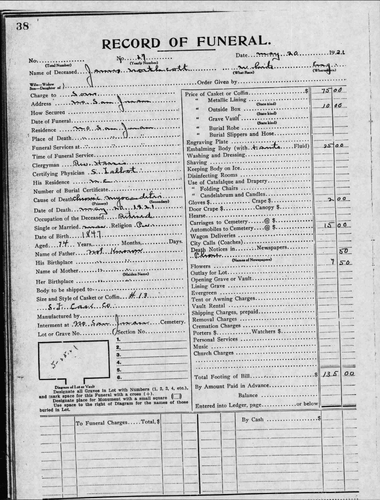 38
RECORD OF FUNERAL.
No. No. 29 Date, May 20 1921
(Total Number) (Yearly Number)
Name of Deceased James Northcott White
(What Race) (Where from)
Wife - Widow
Son - Daughter of Order Given by
Charge to Son
Address Mo. San Juan
How Secured
Date of Funeral
Residence Mo. San Juan
Place of Death
Funeral Services at
Time of Funeral Service
Clergyman Rev. Harris
Certifying Physician S. Talbot
His Residence
Number of Burial Certificate
Cause of Death Chronic myocarditis
Date of Death May 1921
Occupation of the Deceased Retired
Single or Married Religion
Date of Birth 1847
Aged 74 Years Months, Days.
Name of Father not known
His Birthplace
Name of Mother
(Maiden Name)
Her Birthplace
Body to be shipped to
Size and Style of Casket or Coffin #13
S.F. Cask. Co
Manufactured by
Interment at No. San Juan Cemetery.
Lot or Grave No. Section No.
1
2
3
4
5
6
Diagram of Lot or Vault
Designate all Graves in Lot with Numbers (1, 2, 3, 4, etc.),
and mark space for this Funeral with a cross (+).
Designate place for Monument with a small square
Use space to the right of Diagram for the names of those
buried in Lot.
Price of Casket or Coffin $ 75 00
" Metallic Lining
" Outside Box 10 00
(State kind)
" Grave Vault
(State kind)
" Burial Robe
(State kind)
" Burial Slippers and Hose
Engraving Plate
Embalming Body (with Fluid) 25 00
Washing and Dressing
Shaving
Keeping Body on Ice
Disinfecting Rooms
Use of Catafalque and Drapery
" Folding Chairs
" Candelabrum and Candles
Gloves $ Crape $ 2 00
Door Crape $ Canopy $
Hearse
Carriages to Cemetery @ $
Automobiles to Cemetery @ $ 15 00
Wagon Deliveries
City Calls (Coaches)
Death Notices in Newspapers
Phone 50
(Names of Newspapers)
Flowers 7 50
Outlay for Lot
Opening Grave or Vault
Lining Grave
Evergreen
Tent or Awning Charges
Vault Rental
Shipping Charges, prepaid
Removal Charges
Cremation Charges
Porters $ Watchers $
Personal Services
Music
Church Charges
Total Footing of Bill $ 135 00
By Amount Paid in Advance
Balance
Entered into Ledger, page or below.
To Funeral Charges, Total $ By Cash $